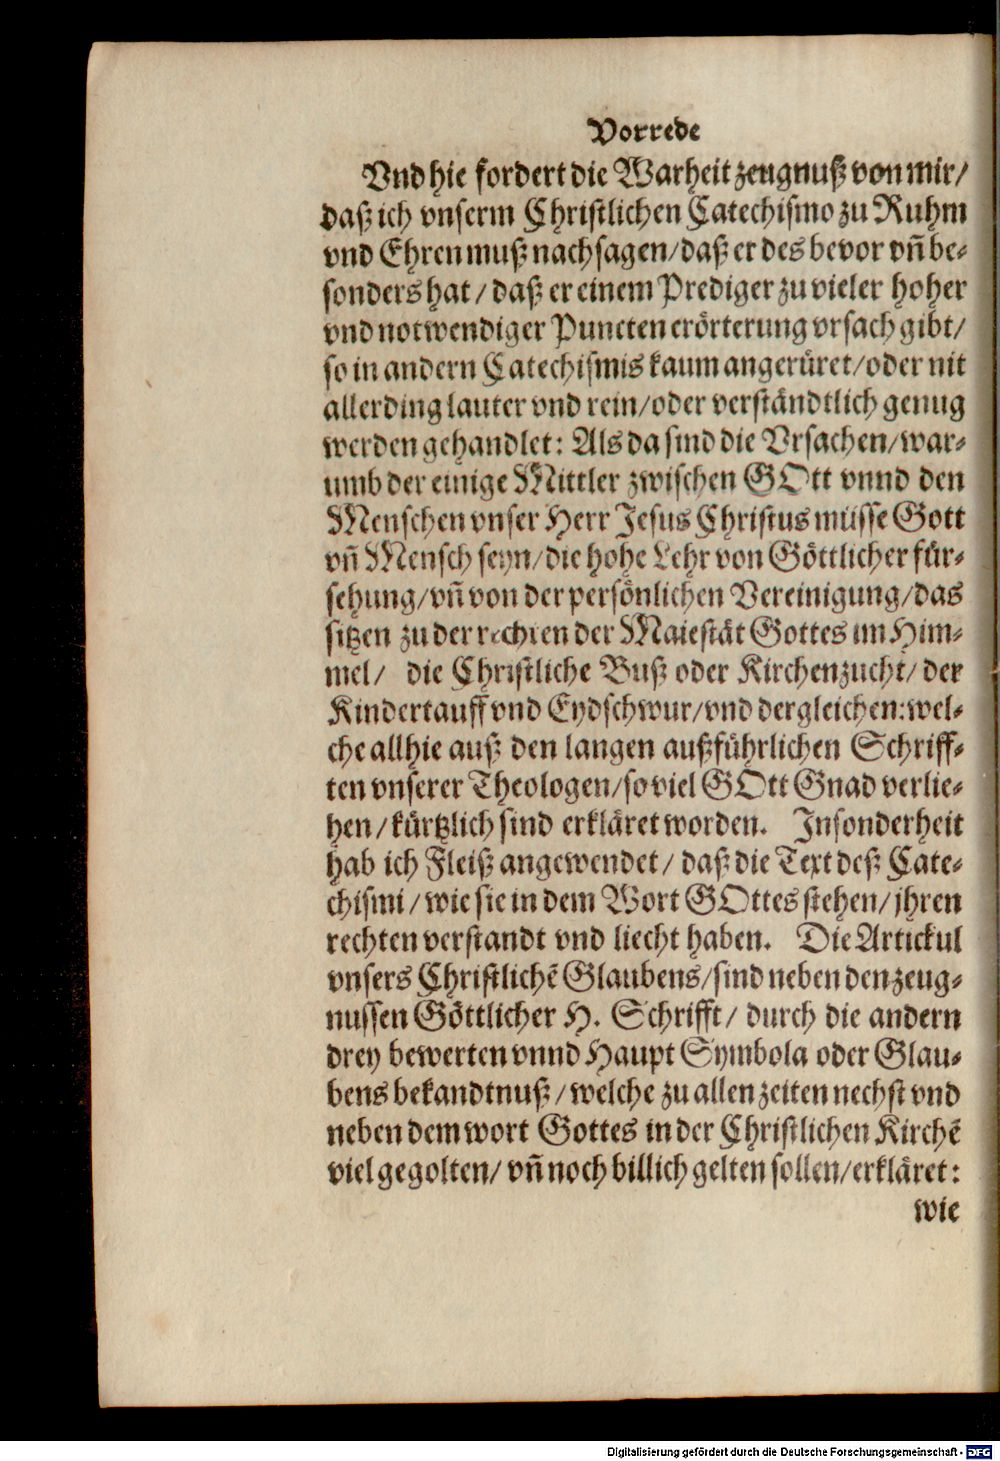 Vorrede
Vnd hie fordert die Warheit zeugnuß von mir/
daß ich vnserm Christlichen Catechismo zu Ruhm
vnd Ehren muß nachsagen/daß er des bevor vñ be⸗
sonders hat/ daß er einem Prediger zu vieler hoher
vnd notwendiger Puncten erörterung vrsach gibt/
so in andern Catechismis kaum angerüret/oder nit
allerding lauter vnd rein/oder verständtlich genug
werden gehandlet: Als da sind die Vrsachen/war⸗
umb der einige Mittler zwischen GOtt vnnd den
Menschen vnser Herr Jesus Christus müsse Gott
vñ Mensch seyn/die hohe Lehr von Göttlicher für⸗
sehung/vñ von der persönlichen Vereinigung/das
sitzen zu der rechten der Maiestät Gottes im Him⸗
mel/ die Christliche Buß oder Kirchenzucht/ der
Kindertauff vnd Eydschwur/vnd dergleichen:wel⸗
che allhie auß den langen außführlichen Schriff⸗
ten vnserer Theologen/so viel GOtt Gnad verlie⸗
hen/kürtzlich sind erkläret worden. Insonderheit
hab ich Fleiß angewendet/ daß die Text deß Cate⸗
chismi/wie sie in dem Wort GOttes stehen/jhren
rechten verstandt vnd liecht haben. Die Artickul
vnsers Christlichẽ Glaubens/sind neben den zeug⸗
nussen Göttlicher H. Schrifft/ durch die andern
drey bewerten vnnd Haupt Symbola oder Glau⸗
bens bekandtnuß/welche zu allen zeiten nechst vnd
neben dem wort Gottes in der Christlichen Kirchẽ
viel gegolten/ vñ noch billich gelten sollen/erkläret:
wie
Digitalisierung gefördert durch die Deutsche Forschungsgemeinschaft - DFG